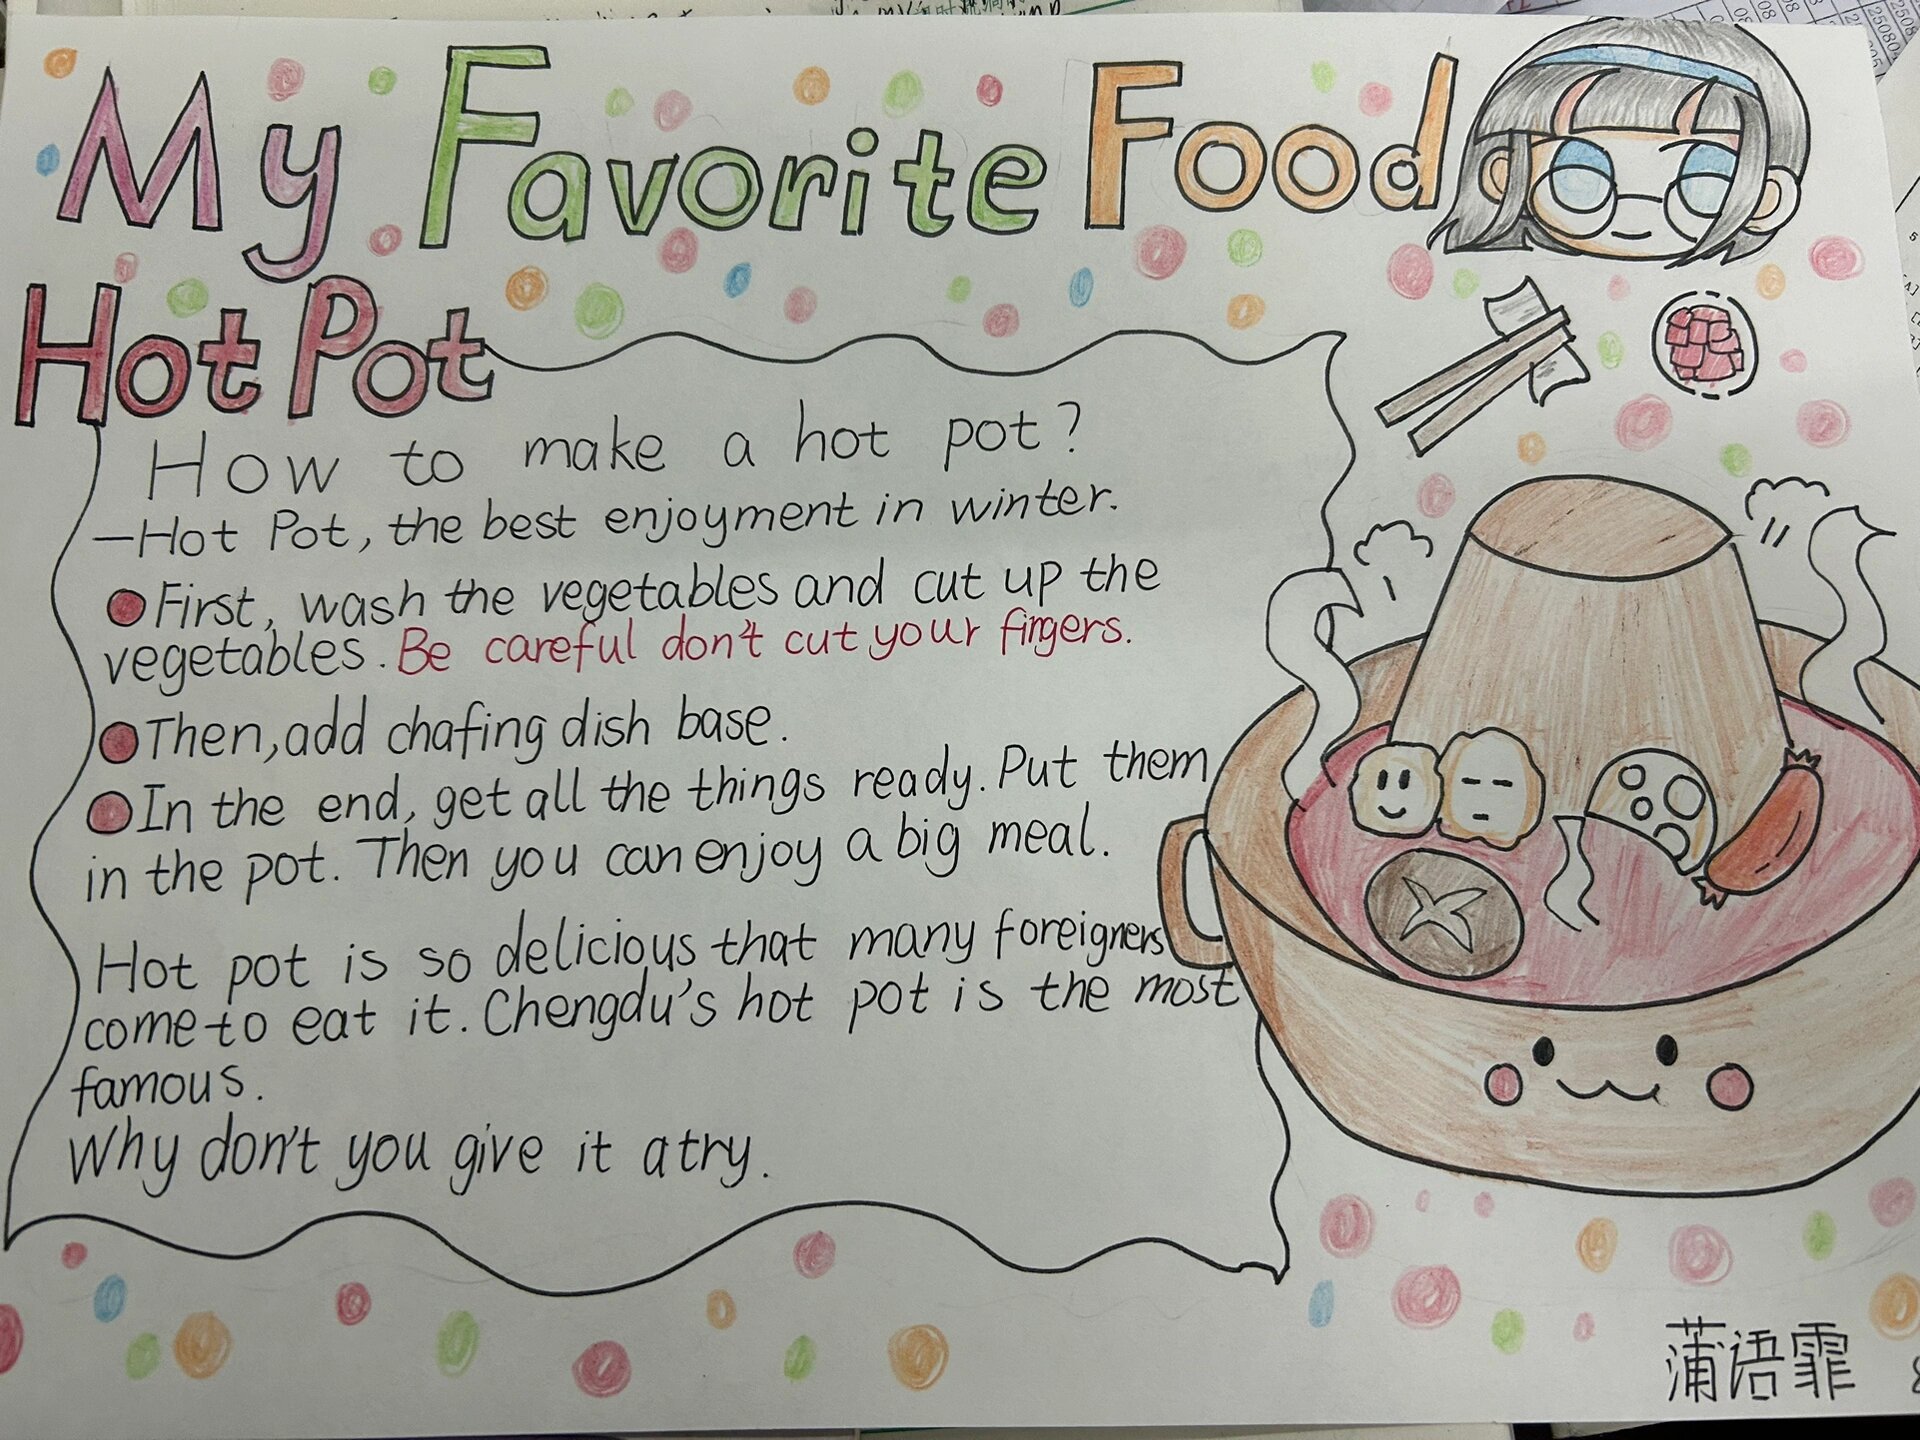 My Favorite Food
Hot Pot
How to make a hot pot?
—Hot Pot, the best enjoyment in winter.
First, wash the vegetables and cut up the
vegetables. Be careful don't cut your fingers.
Then, add chafing dish base.
In the end, get all the things ready. Put them
in the pot. Then you can enjoy a big meal.
Hot pot is so delicious that many foreigners
come to eat it. Chengdu's hot pot is the most
famous.
Why don't you give it a try.
蒲语霏